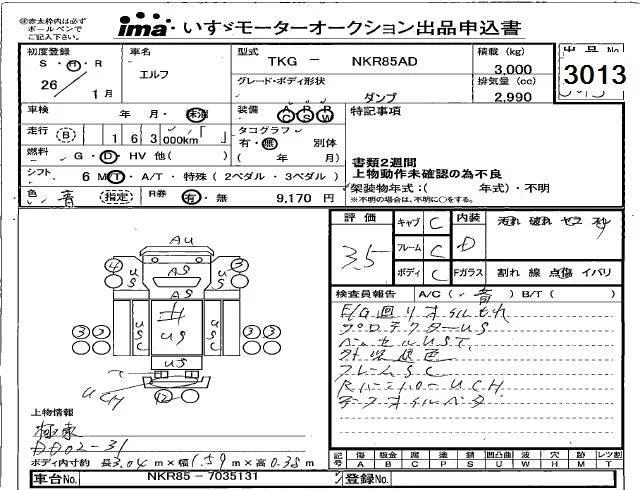 ※赤太枠内は必ず
ボールペンで
ご記入下さい。
ima いすゞモーターオークション出品申込書
初度登録 車名 型式 TKG － NKR85AD 積載 (kg) 出品No.
S・H・R エルフ 3,000 3013
26／1月 グレード・ボディ形状 ダンプ 排気量 (cc) 2,990
車検 年 月・抹消 装備 AC PS PW 特記事項
走行 B 1 6 3 000km タコグラフ 有・無 別体
燃料 G・D・HV 他( ) ( 年 月) 書類2週間
シフト 6 MT・A/T・特殊(2ペダル・3ペダル) 上物動作未確認の為不良
色 青 指定 R券 有・無 9,170 円 架装物年式：( 年式)・不明
※不明の場合は、不明に○をする。
評価 キャブ C 内装 汚れ 破れ
3.5 フレーム C D
ボディ C Fガラス 割れ 線 点傷 イバリ
検査員報告 A/C( 音 )B/T( )
E/G廻リオイルもれ
プロテクターUS
外装退色
フレームSC
RバンパーUCH
デフオイルベタ
AU
4 US AS US 3
AS
3 3 USC US USC 3 3
US
UCH 12
上物情報
極東
DD02-31
ボディ内寸約 長3.04m×幅1.59m×高0.38m
記号 傷 凹 腐 塗 錆 凹凸曲 波 穴 跡 レツ割
A B C P S U W H M T
車台No. NKR85－7035131 登録No.